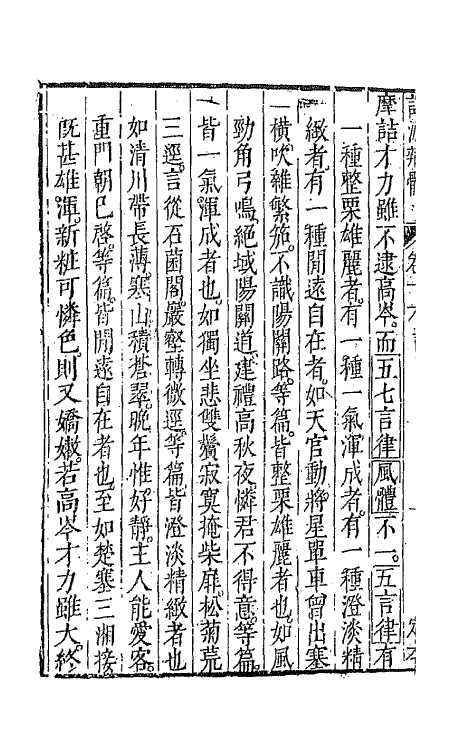 摩詰才力雖不逮高岑。而五七言律風體不一。五言律有
一種整栗雄麗者。有一種一氣渾成者。有一種澄淡精
緻者。有一種閒遠自在者。如天官動將星單車曾出塞
橫吹雜繁笳。不識陽關路等篇。皆整栗雄麗者也。如風
勁角弓鳴。絕域陽關道。建禮高秋夜。憐君不得意。等篇。
皆一氣渾成者也。如獨坐悲雙鬢寂寞掩柴扉。松菊荒
三逕。言從石菌閣。巖壑轉微逕。等篇。皆澄淡精緻者也
如清川帶長薄。寒山積蒼翠。晚年惟好靜。主人能愛客。
重門朝已啓。等篇。皆閒遠自在者也。至如楚塞三湘接
既甚雄渾。新粧可憐色。則又嬌嫩。若高岑才力雖大。終